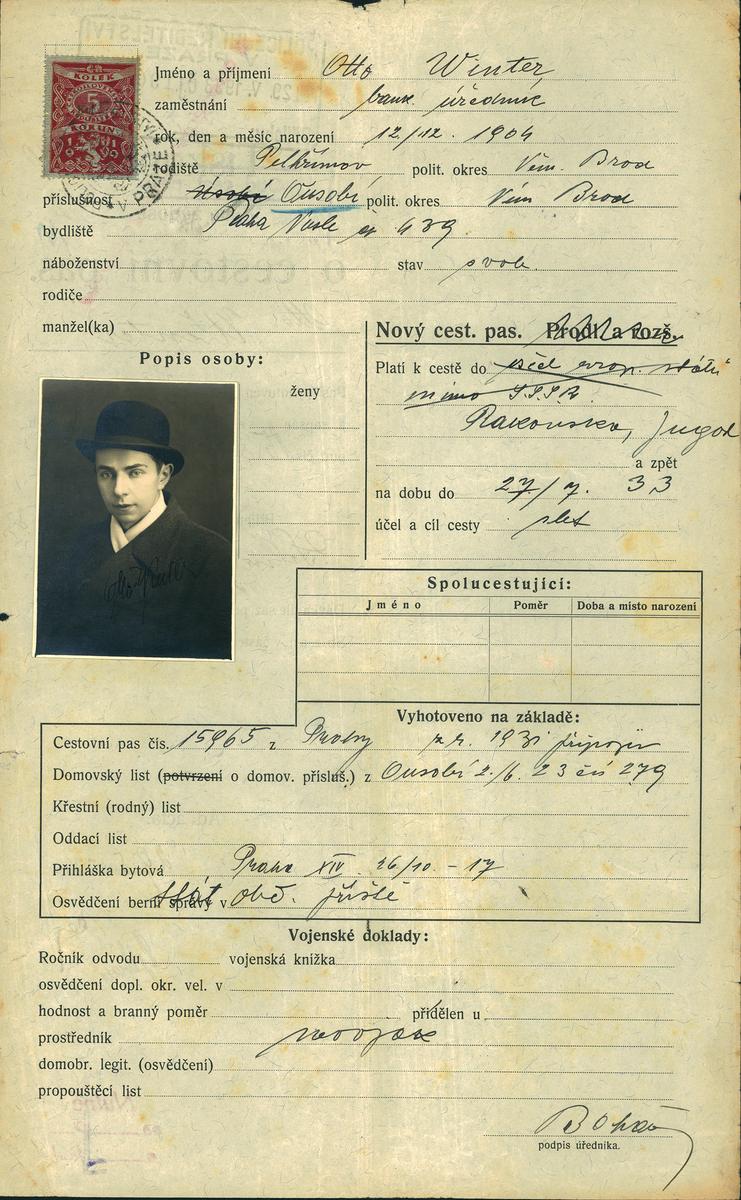 ČR
KOLEK
ČESKOSLOVENSKÁ REPUBLIKA
5
KORUN
PRAZE
Jméno a příjmení Otto Winter
zaměstnání bank. úředník
rok, den a měsíc narození 12/12. 1904
rodiště Pelhřimov polit. okres Něm. Brod
příslušnost Ousobí polit. okres Něm Brod
bydliště Praha Nusle čp 639
náboženství stav svob.
rodiče
manžel(ka)
Nový cest. pas. Prodl. a rozš.
Popis osoby:
Platí k cestě do všech evrop. států
mimo S.S.S.R.
ženy
Rakouska, Jugosl
a zpět
na dobu do 27/7. 33
účel a cíl cesty slet
Otto Winter
Spolucestující:
Jméno Poměr Doba a místo narození
Vyhotoveno na základě:
Cestovní pas čís. 15965 z Prahy z r. 1931 připojen
Domovský list (potvrzení o domov. přísluš.) z Ousobí 2./6. 23 čís 279
Křestní (rodný) list
Oddací list
Přihláška bytová Praha XIV. 26/10 - 17
Osvědčení berní správy v obč. příště
Vojenské doklady:
Ročník odvodu vojenská knížka
osvědčení dopl. okr. vel. v
hodnost a branný poměr přidělen u
prostředník nevoják
domobr. legit. (osvědčení)
propouštěcí list
podpis úředníka.